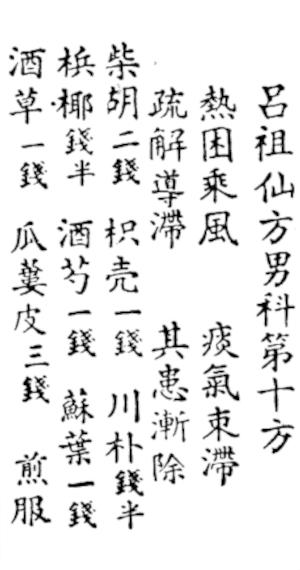 呂祖仙方男科第十方
熱困乘風　痰氣束滯
疏解導滯　其患漸除
柴胡二錢　枳壳一錢　川朴錢半
梹榔錢半　酒芍一錢　蘇葉一錢
酒草一錢　瓜蔞皮三錢　煎服